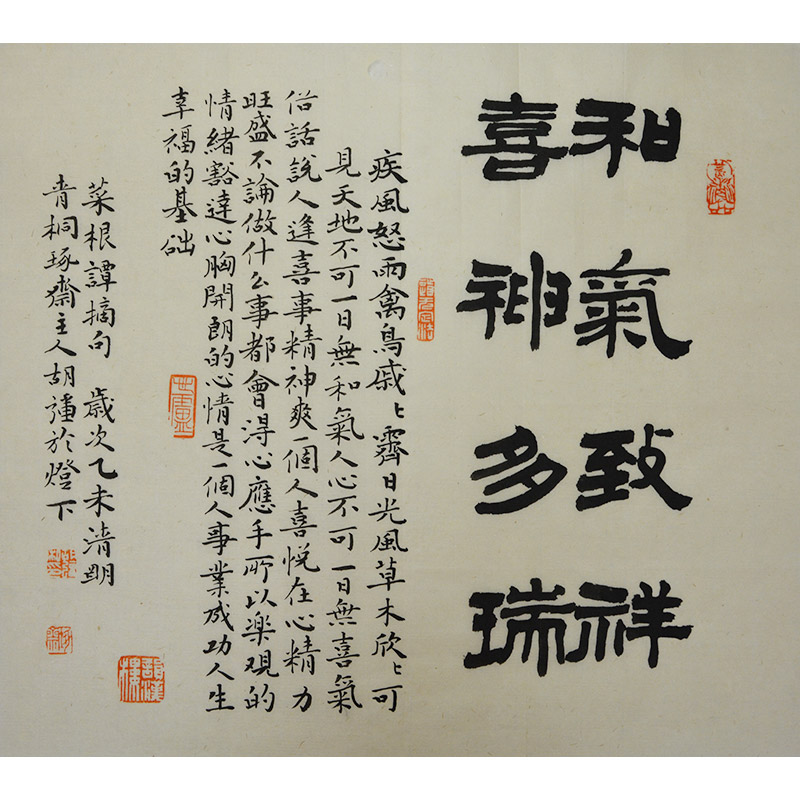 和氣致祥
喜神多瑞
疾風怒雨禽鳥戚〻霽日光風草木欣〻可
見天地不可一日無和氣人心不可一日無喜氣
俗話說人逢喜事精神爽一個人喜悅在心精力
旺盛不論做什么事都會得心應手所以樂觀的
情緒豁達心胸開朗的心情是一個人事業成功人生
幸福的基础
菜根譚摘句 歲次乙未清明
青桐琢齋主人胡於燈下